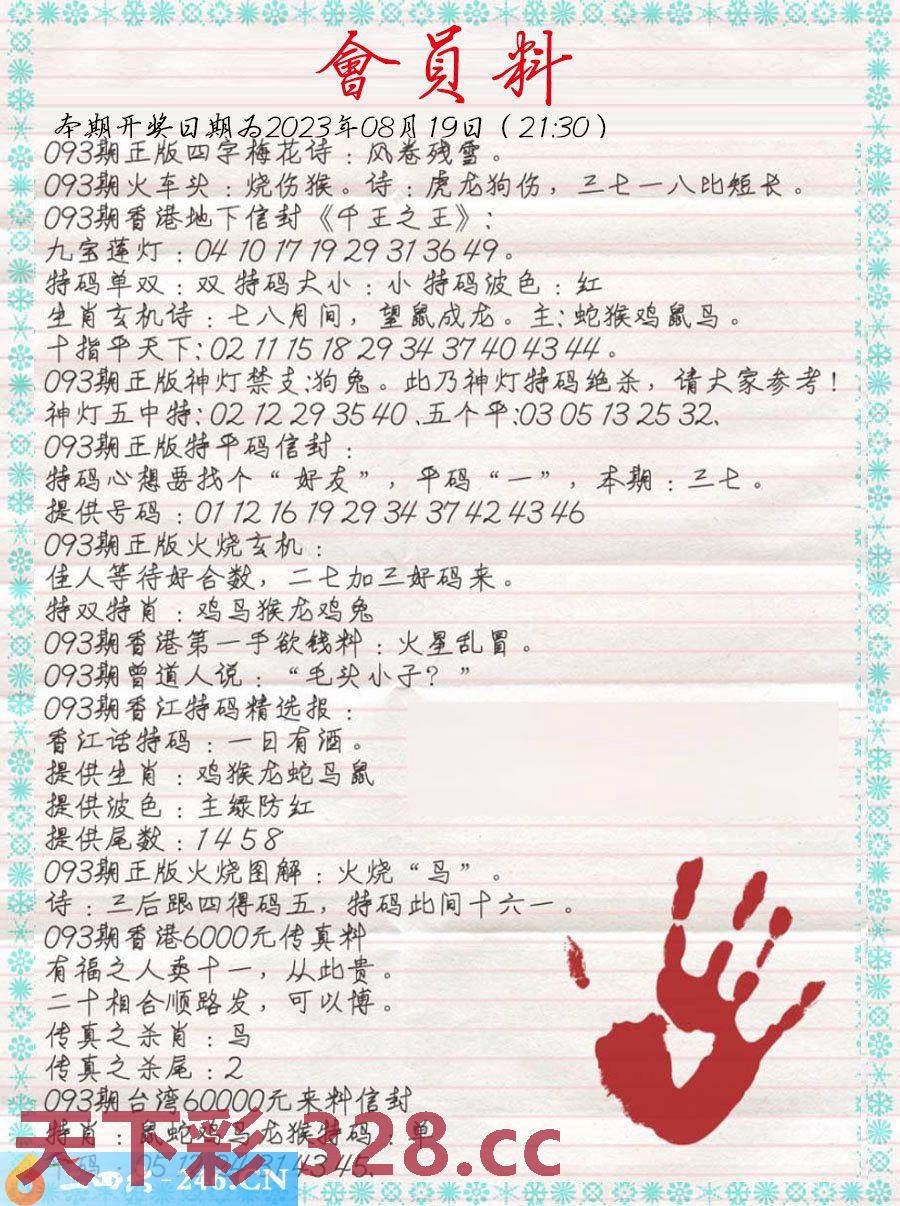 會員料
本期开奖日期为2023年08月19日（21:30）
093期正版四字梅花诗：风卷残雪。
093期火车头：烧伤猴。诗：虎龙狗伤，三七一八比短长。
093期香港地下信封《千王之王》：
九宝莲灯：04 10 17 19 29 31 36 49。
特码单双：双 特码大小：小 特码波色：红
生肖玄机诗：七八月间，望鼠成龙。主：蛇猴鸡鼠马。
十指平天下：02 11 15 18 29 34 37 40 43 44。
093期正版神灯禁支：狗兔。此乃神灯特码绝杀，请大家参考！
神灯五中特：02 12 29 35 40、五个平：03 05 13 25 32、
093期正版特平码信封：
特码心想要找个“好友”，平码“一”，本期：三七。
提供号码：01 12 16 19 29 34 37 42 43 46
093期正版火烧玄机：
佳人等待好合数，二七加三好码来。
特双特肖：鸡马猴龙鸡兔
093期香港第一手欲钱料：火星乱冒。
093期曾道人说：“毛头小子？”
093期香江特码精选报：
香江话特码：一日有酒。
提供生肖：鸡猴龙蛇马鼠
提供波色：主绿防红
提供尾数：1 4 5 8
093期正版火烧图解：火烧“马”。
诗：三后跟四得码五，特码此间十六一。
093期香港6000元传真料
有福之人卖十一，从此贵。
二十相合顺路发，可以博。
传真之杀肖：马
传真之杀尾：2
093期台湾60000元来料信封
特肖：鼠蛇鸡马龙猴特码：单
43 45、
天下彩 328.cc
-246.CN